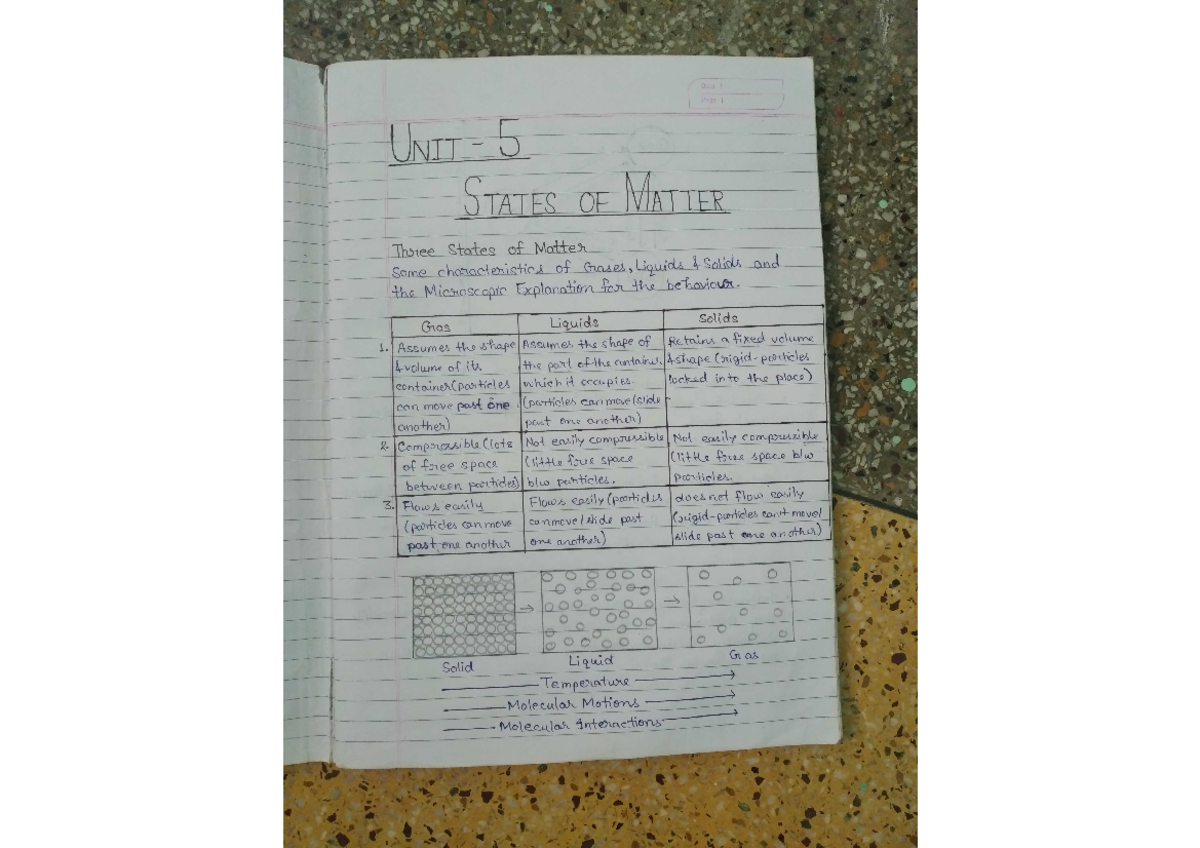 UNIT - 5
STATES OF MATTER
Three States of Matter
Some characteristics of Gases, Liquids & Solids and
the Microscopic Explanation for the behaviour.
Gas
Liquids
Solids
1. Assumes the shape
& volume of its
container (particles
can move past one
another)
Assumes the shape of
the part of the
which it occupies.
(particles can move/slide
past one another)
Retains a fixed volume
& shape (rigid-particles
locked into the place)
2. Compressible (lots
of free space
between particles)
Not easily compressible
(little free space
b/w particles.
Not easily compressible
(little free space b/w
particles.
3. Flows easily
(particles can move
past one another
Flows easily (particles
can move/slide past
one another)
does not flow easily
(rigid-particles can't move/
slide past one another)
Solid
Liquid
Gas
Temperature
Molecular Motions
Molecular Interactions